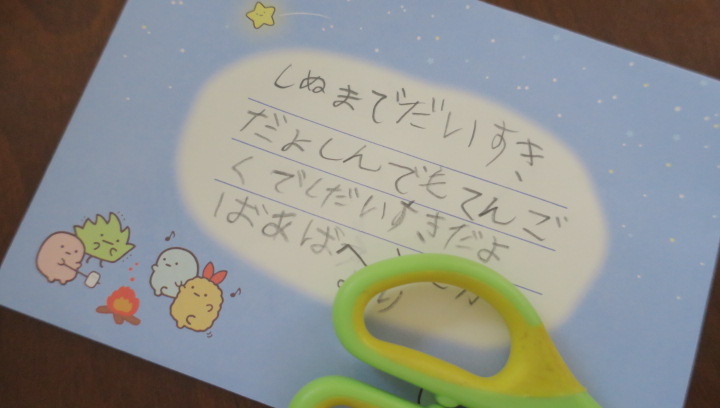 しぬまでだいすき
だよしんでもてんご
くでもだいすきだよ
ばあばへ
り